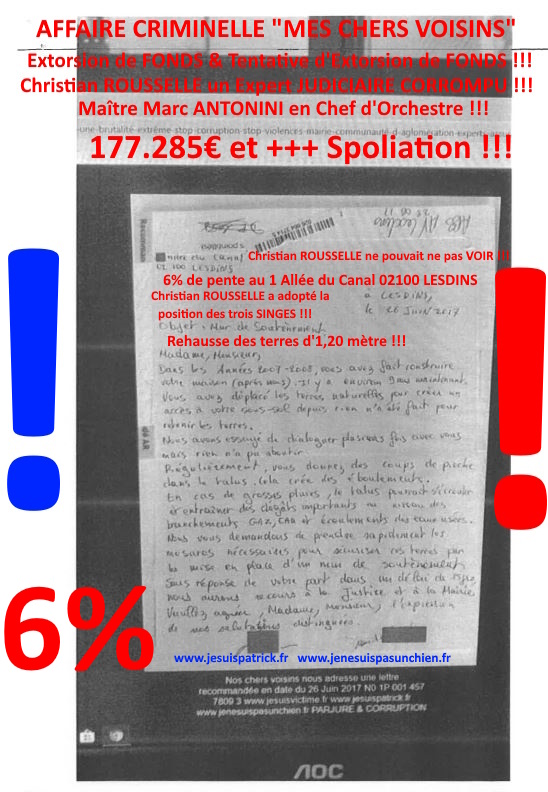 AFFAIRE CRIMINELLE "MES CHERS VOISINS"
Extorsion de FONDS & Tentative d'Extorsion de FONDS !!!
Christian ROUSSELLE un Expert JUDICIAIRE CORROMPU !!!
Maître Marc ANTONINI en Chef d'Orchestre !!!
-une-brutalité-extrême-stop-corruption-stop-violences-mairie-communauté-d-aglomération-experts
177.285€ et +++ Spoliation !!!
Christian ROUSSELLE ne pouvait ne pas VOIR !!!
du Canal
02 100 LESDINS
6% de pente au 1 Allée du Canal 02100 LESDINS
Christian ROUSSELLE a adopté la
à LESDINS,
position des trois SINGES !!!
le 26 JUIN 2017
Objet : Mur de Soutènement
Rehausse des terres d'1,20 mètre !!!
Madame, Monsieur,
Dans les Années 2007-2008, vous avez fait construire
votre maison (après nous). Il y a environ 9 ans maintenant
Vous avez déplacé les terres naturelles pour créer un
accès à votre sous-sol depuis rien n'a été fait pour
retenir les terres.
Nous avons essayé de dialoguer plusieurs fois avec vous
mais rien n'a pu aboutir.
Régulièrement, vous donnez des coups de pioche
dans le talus. Cela crée des éboulements.
En cas de grosses pluies, le talus pourrait s'écrouler
et entraîner des dégâts importants au niveau des
branchements GAZ, EAU et écoulements des eaux usées.
Nous vous demandons de prendre rapidement les
mesures nécessaires pour sécuriser ces terres par
la mise en place d'un mur de soutènement
Sans réponse de votre part dans un délai de
nous aurons recours à la Justice et à la Mairie
Veuillez agréer, Madame, Monsieur, l'expression
de nos salutations distinguées.
6%
www.jesuispatrick.fr www.jenesuispasunchien.fr
Nos chers voisins nous adresse une lettre
recommandée en date du 26 Juin 2017 N0 1P 001 457
7809 3 www.jesuisvictime.fr www.jesuispatrick.fr
www.jenesuispasunchien.fr PARJURE & CORRUPTION
AOC